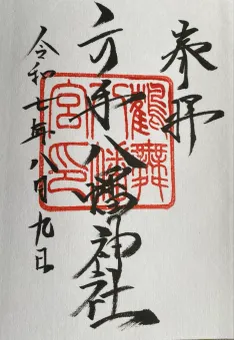 奉拝
鶴舞
八幡神社
宮印
令和七年八月九日